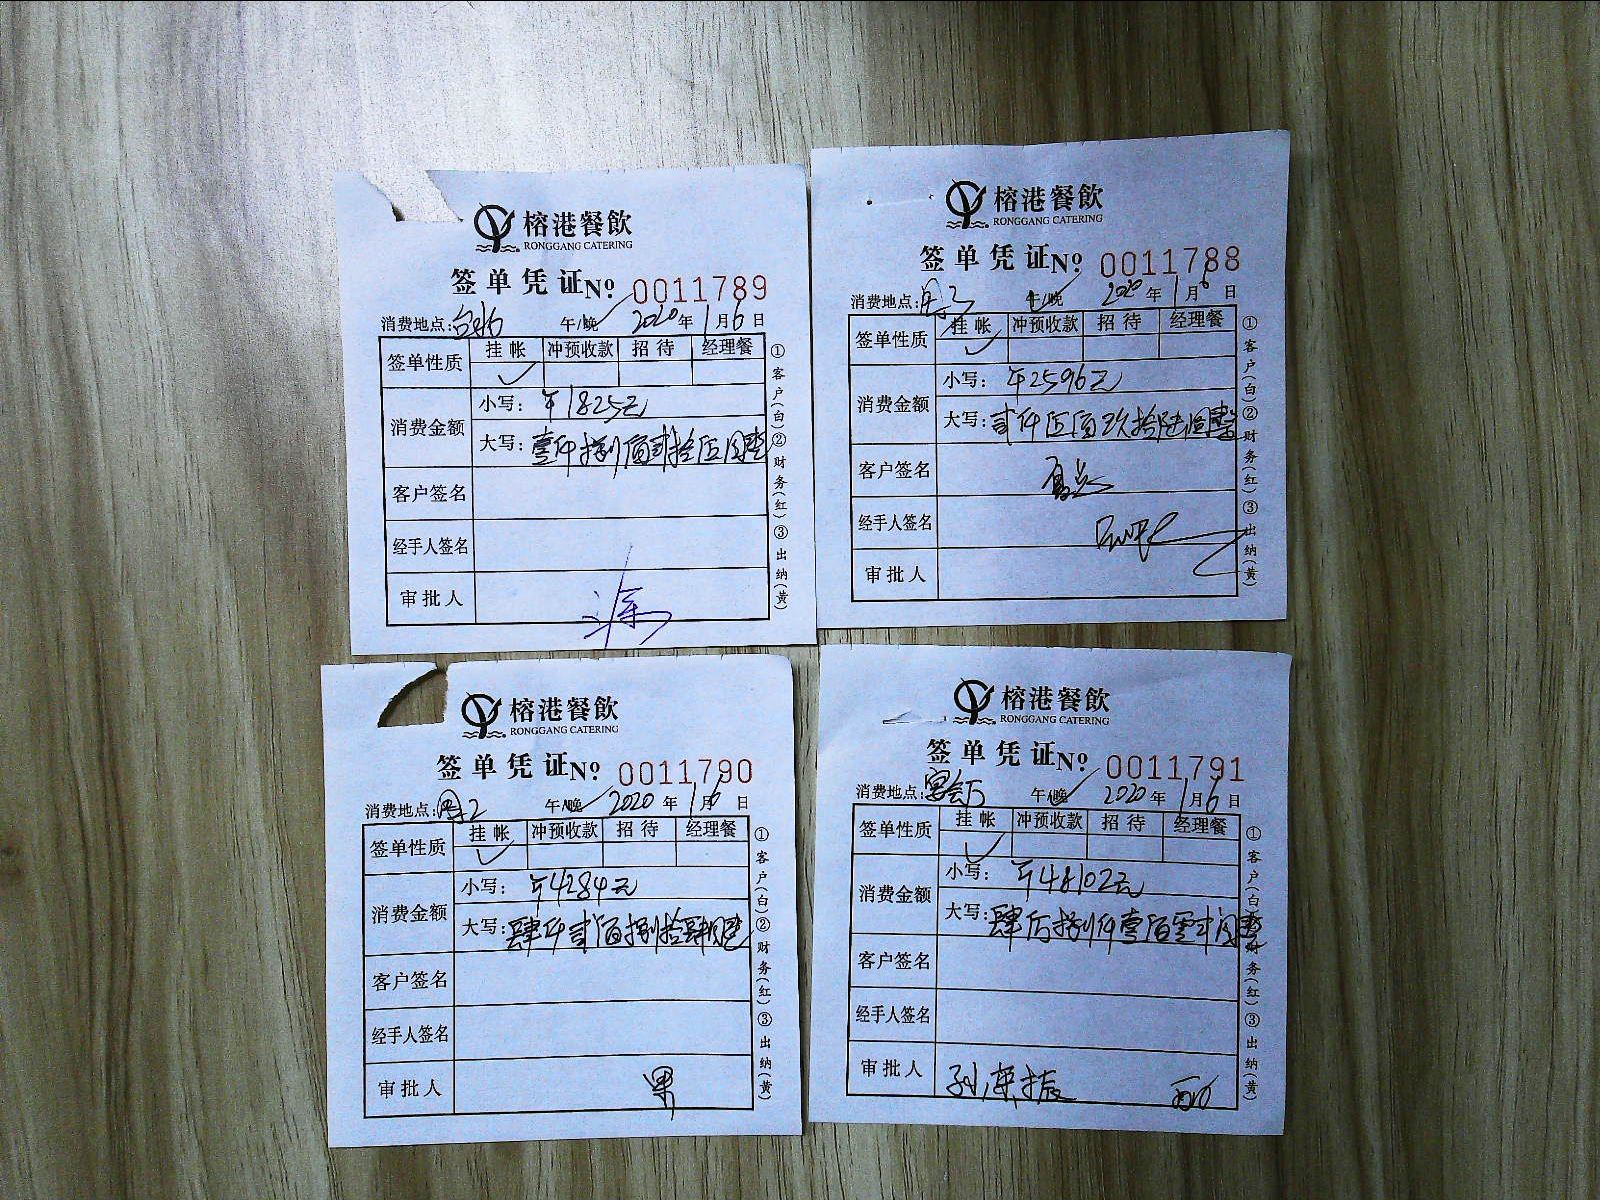 榕港餐飲
RONGGANG CATERING
签单凭证 № 0011789
消费地点: 午/晚 2020年1月6日
签单性质 挂帐 冲预收款 招待 经理餐
✓
消费金额 小写: ￥1825元
大写: 壹仟捌佰贰拾伍圆整
客户签名
经手人签名
审批人
①客户(白)②财务(红)③出纳(黄)
榕港餐飲
RONGGANG CATERING
签单凭证 № 0011788
消费地点: 午/晚 2020年1月6日
签单性质 挂帐 冲预收款 招待 经理餐
✓
消费金额 小写: ￥2596元
大写: 贰仟伍佰玖拾陆圆整
客户签名
经手人签名
审批人
①客户(白)②财务(红)③出纳(黄)
榕港餐飲
RONGGANG CATERING
签单凭证 № 0011790
消费地点: 午/晚 2020年1月6日
签单性质 挂帐 冲预收款 招待 经理餐
✓
消费金额 小写: ￥4284元
大写: 肆仟贰佰捌拾肆圆整
客户签名
经手人签名
审批人
①客户(白)②财务(红)③出纳(黄)
榕港餐飲
RONGGANG CATERING
签单凭证 № 0011791
消费地点: 宴会厅 午/晚 2020年1月6日
签单性质 挂帐 冲预收款 招待 经理餐
✓
消费金额 小写: ￥48102元
大写: 肆万捌仟壹佰零贰圆整
客户签名
经手人签名
审批人 孙荣振
①客户(白)②财务(红)③出纳(黄)